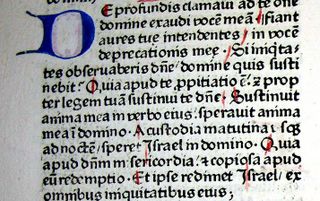 De profundis clamaui ad te dn̄e
domine exaudi vocē meā ; fiant
aures tue intendentes ; in vocē
deprecationis mee . Si iniq̄ta-
tes obseruaberis dn̄e ; domine quis susti
nebit ? Quia apud te ꝓpitiatio ē ; ⁊ prop
ter legem tuā sustinui te dn̄e ; Sustinuit
anima mea in verbo eius ; sperauit anima
mea ī domino . A custodia matutina ; usq̄
ad noctē ; speret Israel in domino . Quia
apud dn̄m misericordia ; ⁊ copiosa apud
eū redemptio . Et ipse redimet Israel ; ex
omnibus iniquitatibus eius ;